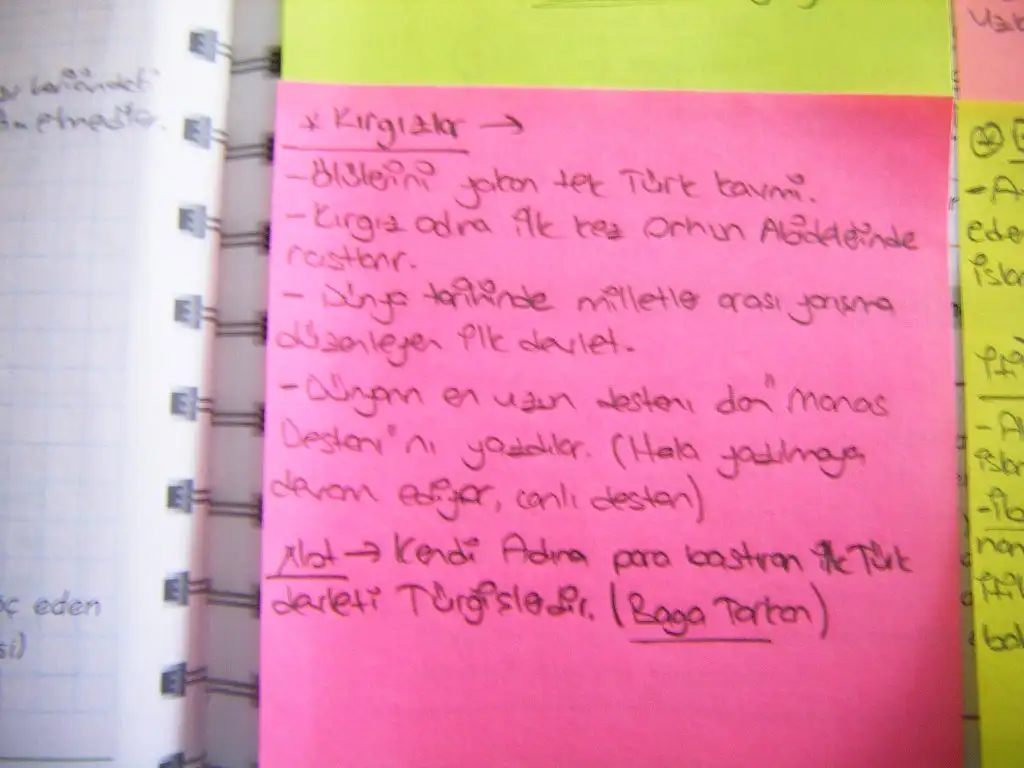 * Kırgızlar →
- Ölülerini yakan tek Türk kavmi.
- Kırgız adına ilk kez Orhun Abidelerinde
rastlanır.
- Dünya tarihinde milletler arası yarışma
düzenleyen ilk devlet.
- Dünyanın en uzun destanı olan "Manas
Destanı"nı yazdılar. (Hala yazılmaya
devam ediyor, canlı destan)
*Not → Kendi Adına para bastıran ilk Türk
devleti Türgişlerdir. (Baga Tarkan)
etmedir.
eden
si)